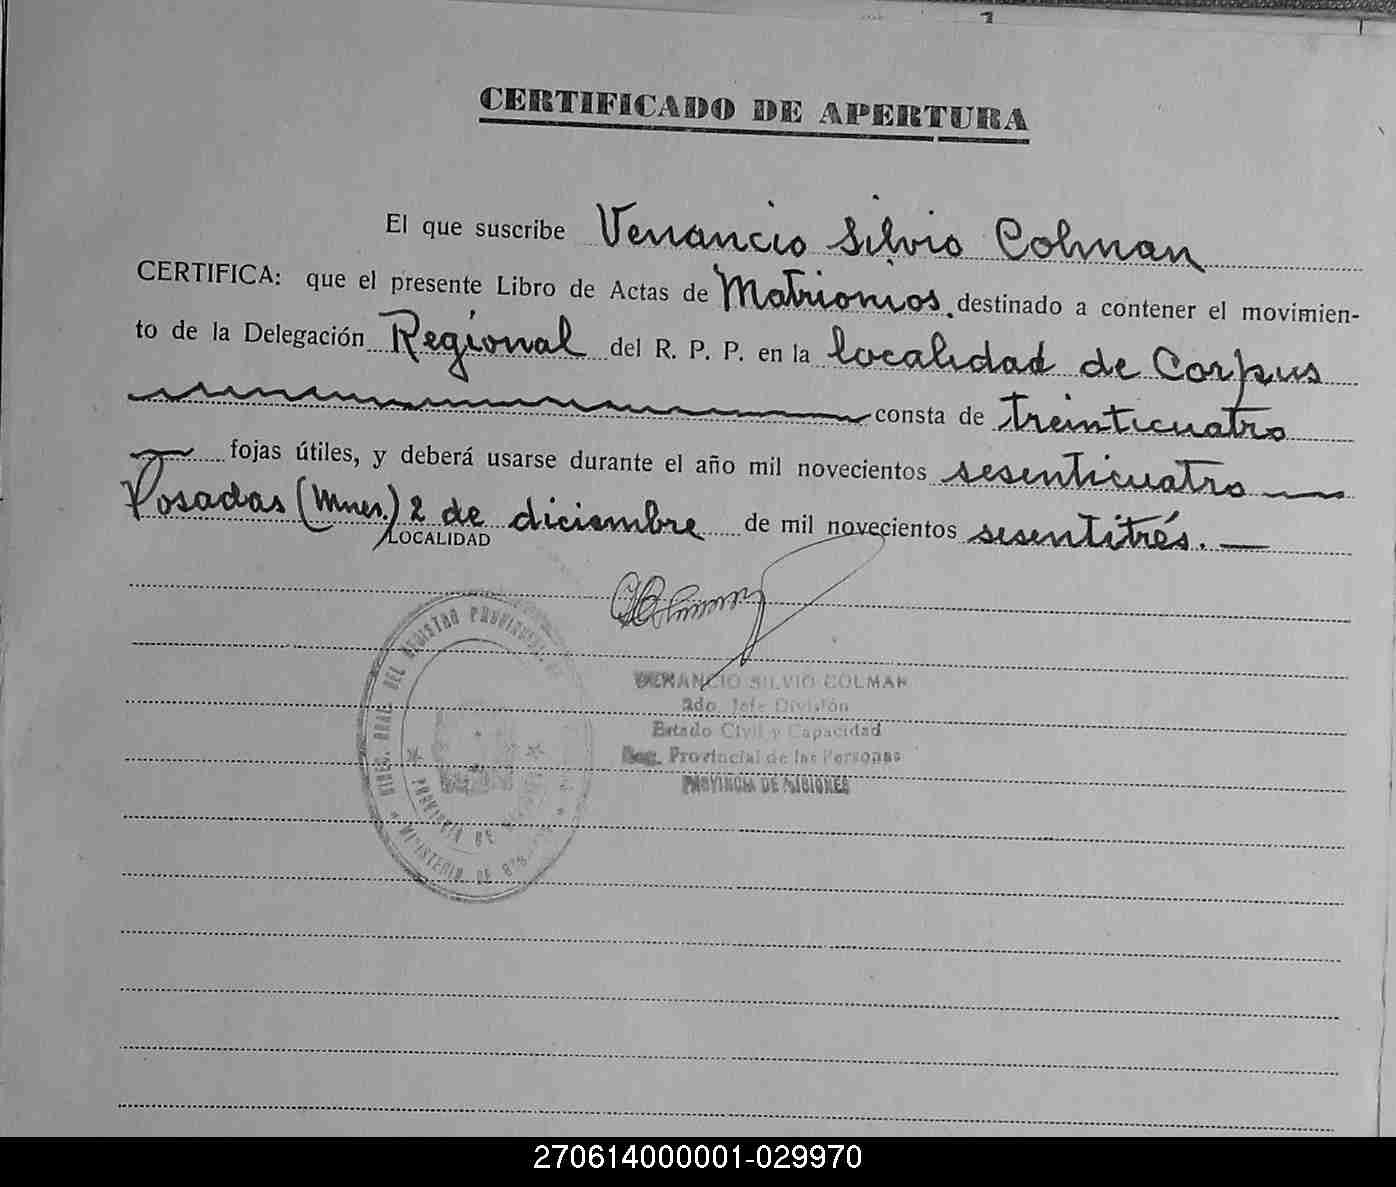 CERTIFICADO DE APERTURA
El que suscribe Venancio Silvio Colman
CERTIFICA: que el presente Libro de Actas de Matrionios. destinado a contener el movimien-
to de la Delegación Regional del R. P. P. en la localidad de Corpus
consta de treinticuatro
fojas útiles, y deberá usarse durante el año mil novecientos sesenticuatro
Posadas (Mnes.) 2 de diciembre de mil novecientos sesentitrés.—
LOCALIDAD
VENANCIO SILVIO COLMAN
2do. Jefe División
Estado Civil y Capacidad
Reg. Provincial de las Personas
PROVINCIA DE MISIONES
DIREC. GRAL. DEL REGISTRO PROVINCIAL DE
PROVINCIA DE
MINISTERIO DE
270614000001-029970